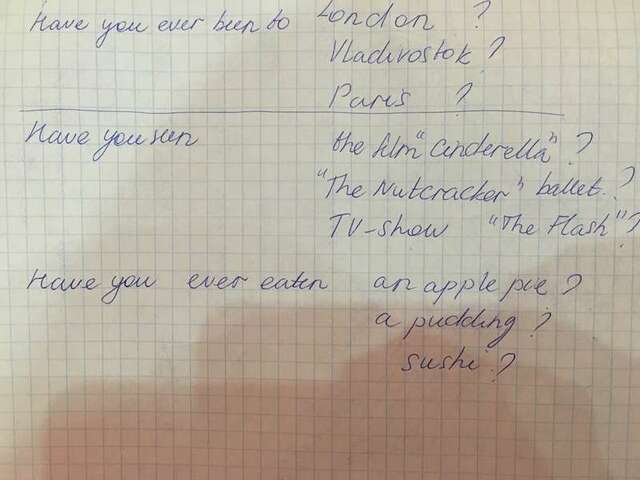 Have you ever been to London ?
Vladivostok ?
Paris ?
Have you seen the film "Cinderella" ?
"The Nutcracker" ballet. ?
TV-show "The Flash" ?
Have you ever eaten an apple pie ?
a pudding ?
sushi ?